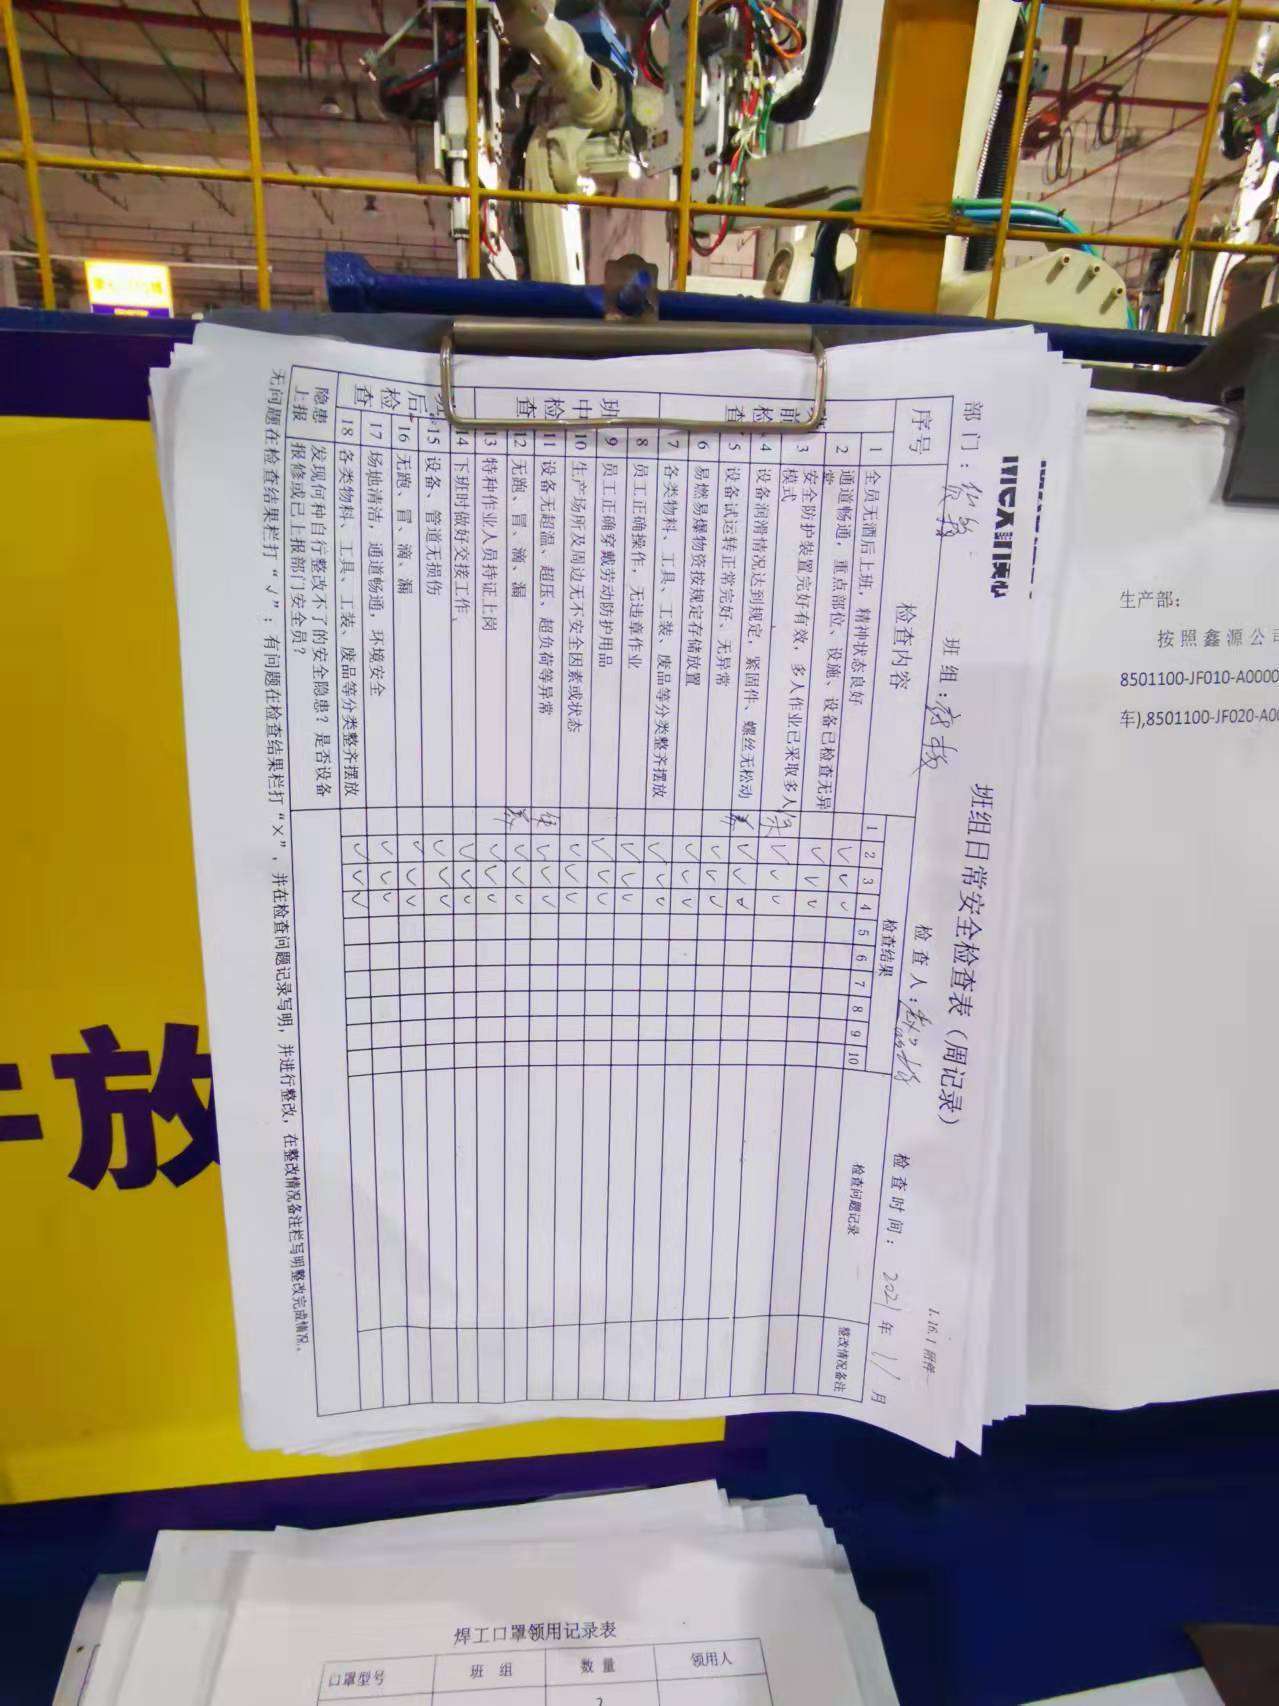 1.16.1 附件
班组日常安全检查表（周记录）
部门： 班组： 检查人： 检查时间：2021年11月
序号 检查内容 检查结果 检查问题记录 整改情况备注
1 2 3 4 5 6 7 8 9 10
班前检查
1 全员无酒后上班，精神状态良好
2 通道畅通，重点部位、设施、设备已检查无异常 √ √ √
3 安全防护装置完好有效，多人作业已采取多人模式 √ √ √
4 设备润滑情况达到规定，紧固件、螺丝无松动 √ √ √
5 设备试运转正常完好、无异常 √ √ √
6 易燃易爆物资按规定存储放置 √ √ √
7 各类物料、工具、工装、废品等分类整齐摆放 √ √ √
班中检查
8 员工正确操作，无违章作业 √ √ √
9 员工正确穿戴劳动防护用品 √ √ √
10 生产场所及周边无不安全因素或状态 √ √ √
11 设备无超温、超压、超负荷等异常 √ √ √
12 无跑、冒、滴、漏 √ √ √
13 特种作业人员持证上岗 √ √ √
班后检查
14 下班时做好交接工作、 √ √ √
15 设备、管道无损伤 √ √ √
16 无跑、冒、滴、漏 √ √ √
17 场地清洁，通道畅通，环境安全 √ √ √
18 各类物料、工具、工装、废品等分类整齐摆放 √ √ √
隐患上报 发现何种自行整改不了的安全隐患？是否设备
报修或已上报部门安全员？
无问题在检查结果栏打“√”；有问题在检查结果栏打“×”，并在检查问题记录写明，并进行整改，在整改情况备注栏写明整改完成情况。
生产部：
按照鑫源公司
8501100-JF010-A0000
车),8501100-JF020-A00
放
焊工口罩领用记录表
口罩型号 班 组 数 量 领用人
2